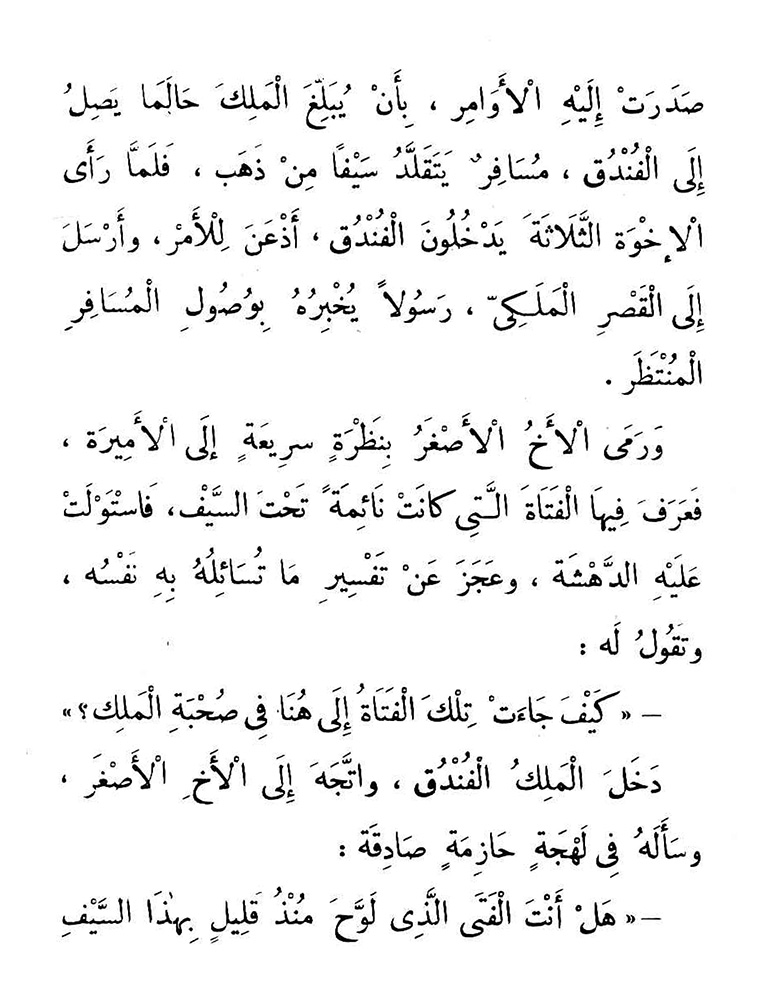 صَدَرَتْ إِلَيْهِ الْأَوَامِر ، بِأَنْ يُبَلِّغَ الْمَلِكَ حَالَمَا يَصِلُ
إِلَى الْفُنْدُق ، مُسَافِرٌ يَتَقَلَّدُ سَيْفًا مِنْ ذَهَب ، فَلَمَّا رَأَى
الْإِخْوَة الثَّلَاثَةَ يَدْخُلُونَ الْفُنْدُق ، أَذْعَنَ لِلْأَمْرْ ، وأَرْسَلَ
إِلَى الْقَصْرِ الْمَلَكِىّ ، رَسُولاً يُخْبِرُهُ بِوُصُولِ الْمُسَافِرِ
الْمُنْتَظَر .
وَرَمَى الْأَخُ الْأَصْغَرُ بِنَظْرَةٍ سرِيعَةٍ إلَى الْأَمِيرَة ،
فَعَرَفَ فِيهَا الْفَتَاةَ الَّتِى كانَتْ نَائِمَةً تَحْتَ السَّيْف ، فَاسْتَوْلَتْ
عَلَيْهِ الدَّهْشَة ، وعَجَزَ عَنْ تَفْسِيرِ مَا تُسَائِلُهُ بِهِ نَفْسُه ،
وتقُولُ لَه :
— « كَيْفَ جَاءَتْ تِلْكَ الْفَتَاةُ إِلَى هُنَا فِى صُحْبَةِ الْمَلِك ؟ »
دَخَلَ الْمَلِكُ الْفُنْدُق ، واتَّجَهَ إِلَى الْأَخِ الْأَصْغَر ،
وسَأَلَهُ فِى لَهْجَةٍ حَازِمَةٍ صَادِقَة :
— « هَلْ أَنْتَ الْفَتَى الَّذِى لَوَّحَ مُنْذُ قَلِيلٍ بِهٰذَا السَّيْفِ